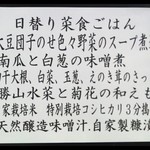 日替り菜食ごはん
大豆団子のせ色々野菜のスープ煮
南瓜と白葱の味噌煮
切干大根、白菜、玉葱、えのき茸のきっ
勝山水菜と菊花の和えも
家栽培米 特別栽培コシヒカリ3分搗
天然醸造味噌汁、自家製糠漬